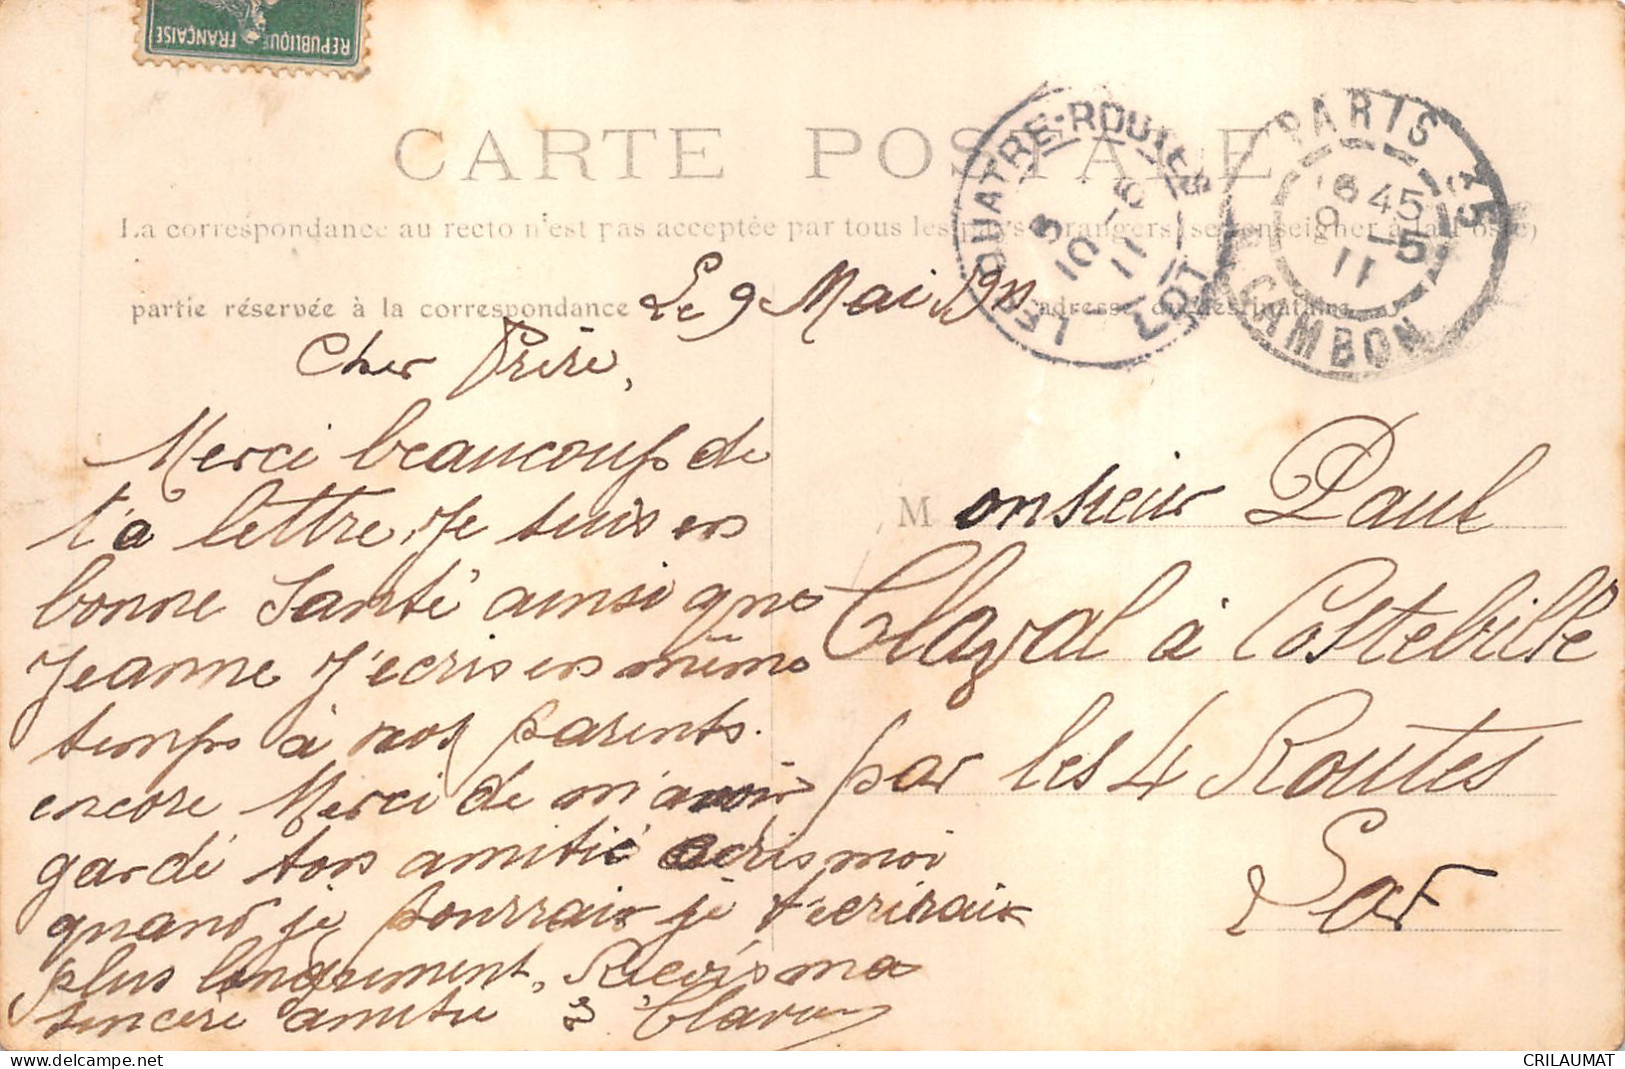 REPUBLIQUE FRANÇAISE
CARTE POSTALE
La correspondance au recto n'est pas acceptée par tous les pays étrangers (se renseigner à la Poste)
partie réservée à la correspondance
adresse du destinataire
LE QUATRE-ROUTES
8
10 -5
11
LOT
PARIS 75
18 45
9 -5
11
R. CAMBON
Le 9 Mai 1911
Cher Frère,
Merci beaucoup de
ta lettre, Je suis en
bonne Santé ainsi que
Jeanne J'ecris en même
temps à nos parents.
encore Merci de m'avoir
gardé ton amitié ecris moi
quand je pourrais je t'ecrirais
plus longuement, Recois ma
sincère amitié
Monsieur Paul
Clazal à Costeville
par les 4 Routes
Lot
www.delcampe.net
CRILAUMAT